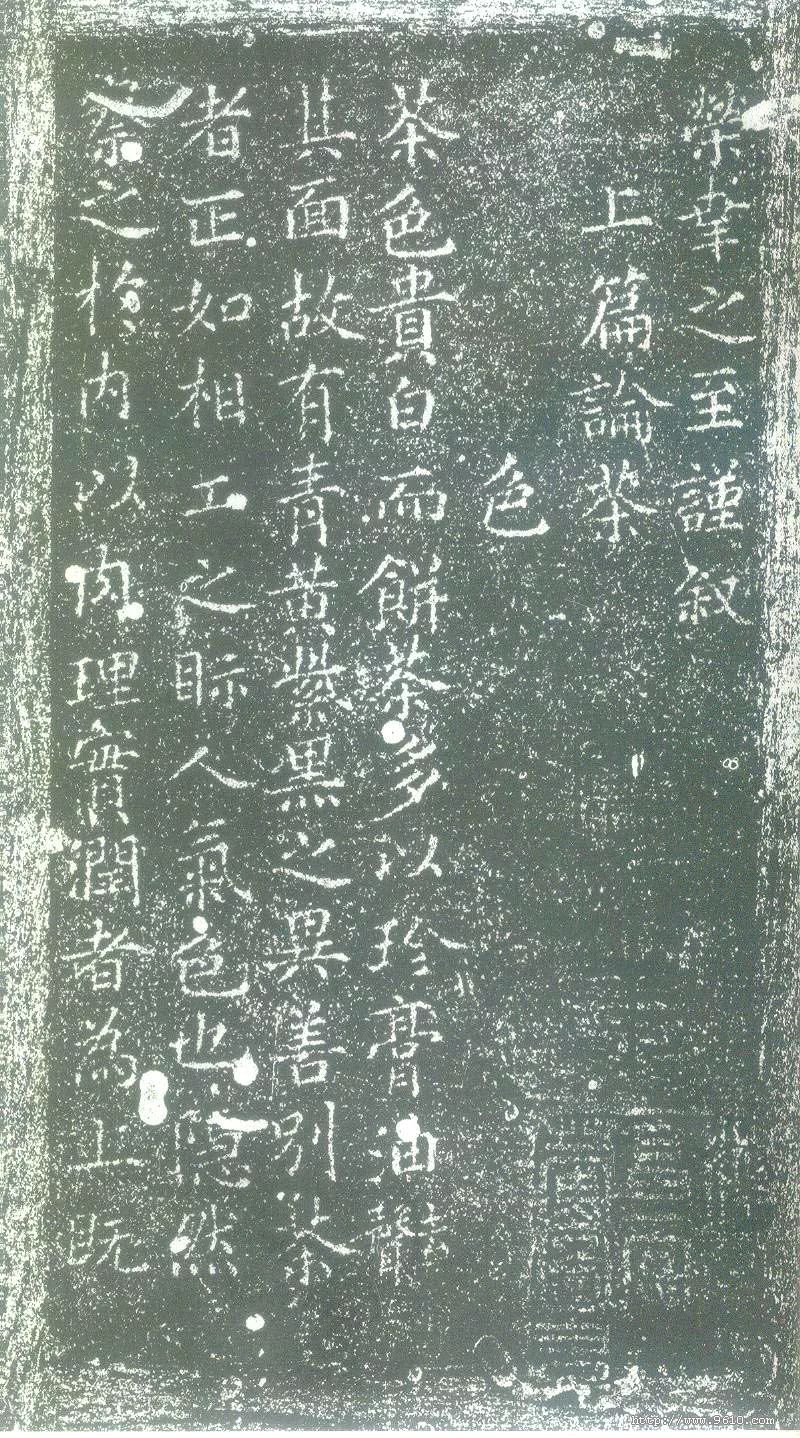 榮幸之至謹叙
上篇論茶
色
茶色貴白而餅茶多以珍膏油
其面故有青黄紫黑之異善別茶
者正如相工之眎人氣色也隱然
察之於内以肉理實潤者為上既
http://www.9610.com